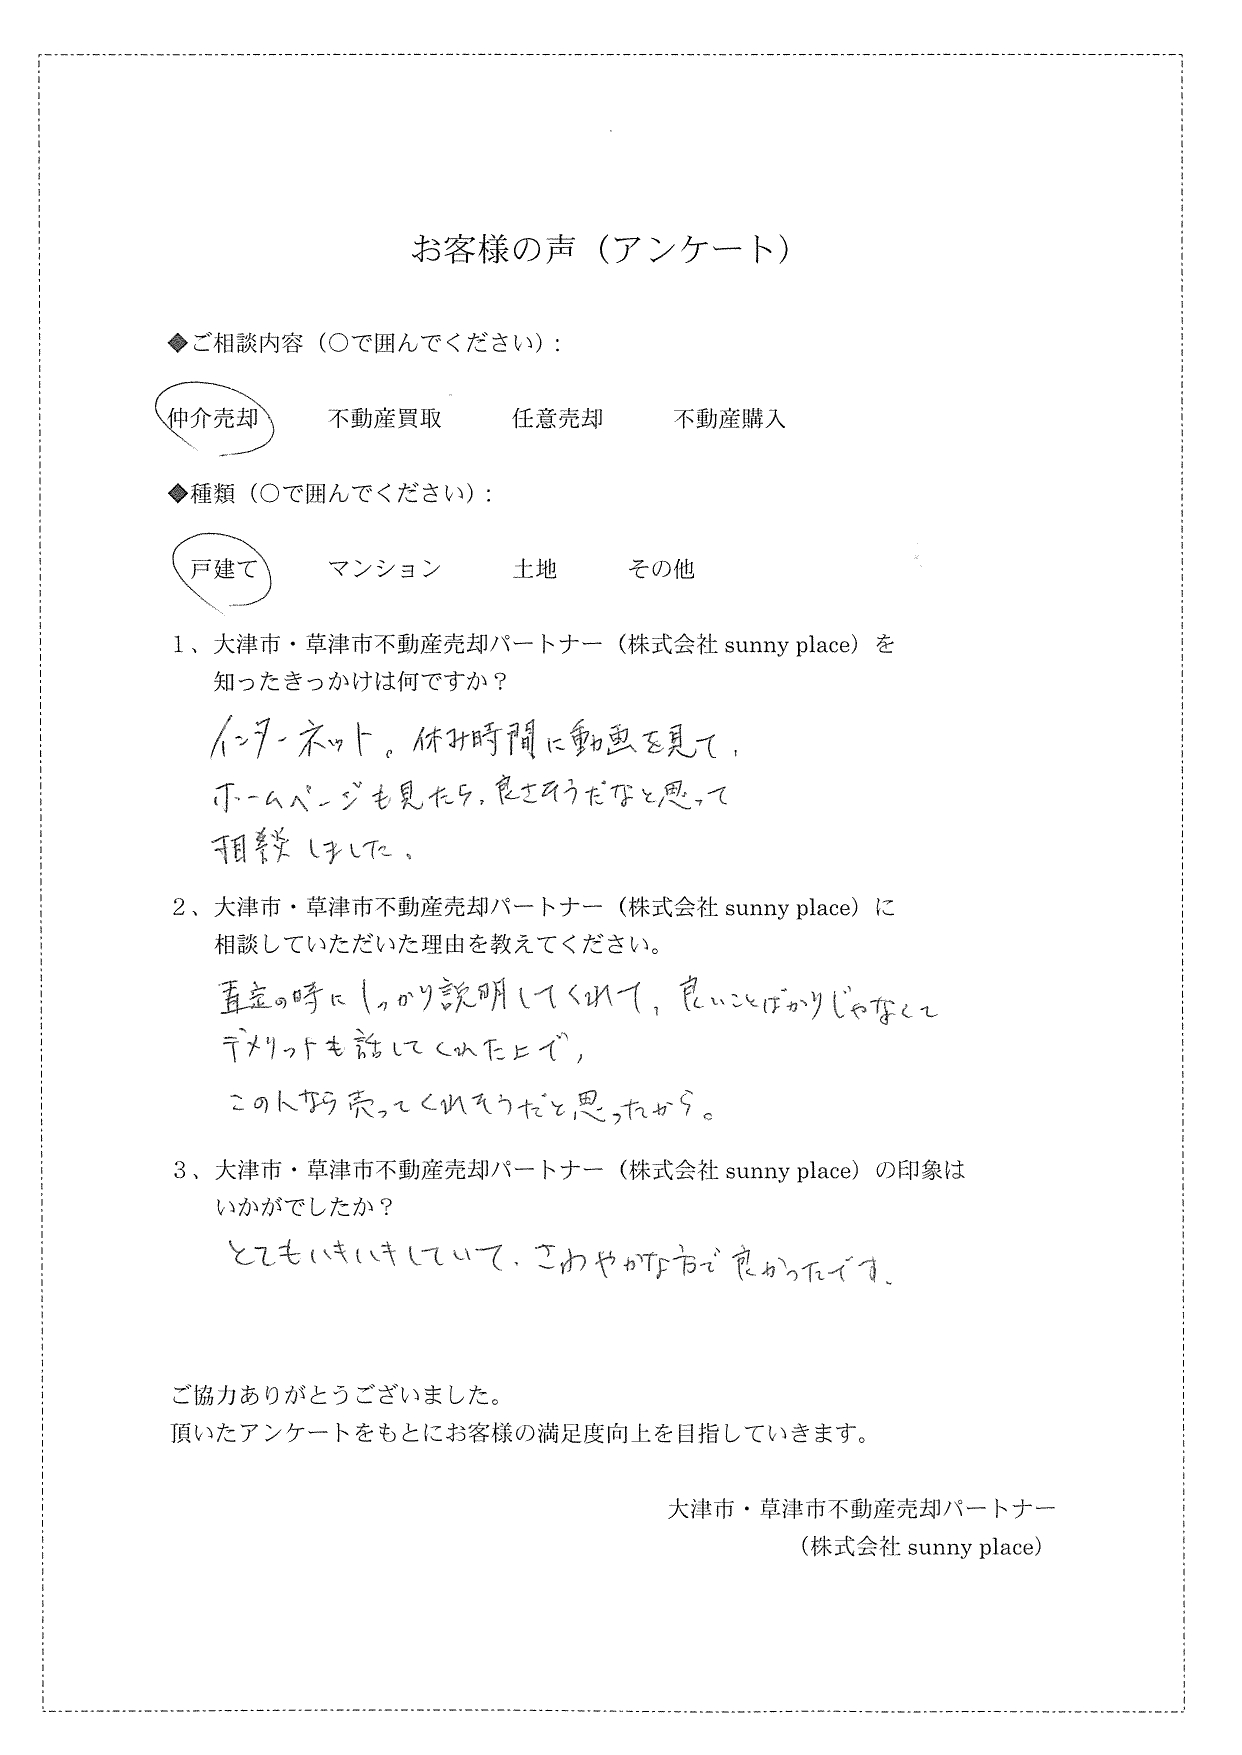 お客様の声（アンケート）
◆ご相談内容（〇で囲んでください）:
仲介売却　不動産買取　任意売却　不動産購入
◆種類（〇で囲んでください）:
戸建て　マンション　土地　その他
１、大津市・草津市不動産売却パートナー（株式会社 sunny place）を
知ったきっかけは何ですか？
インターネット。休み時間に動画を見て、
ホームページも見たら、良さそうだなと思って
相談しました、
２、大津市・草津市不動産売却パートナー（株式会社 sunny place）に
相談していただいた理由を教えてください。
査定の時にしっかり説明してくれて、良いことばかりじゃなくて
デメリットも話してくれた上で、
この人なら売ってくれそうだと思ったから。
３、大津市・草津市不動産売却パートナー（株式会社 sunny place）の印象は
いかがでしたか？
とてもいきいきしていて、さわやかな方で良かったです、
ご協力ありがとうございました。
頂いたアンケートをもとにお客様の満足度向上を目指していきます。
大津市・草津市不動産売却パートナー
（株式会社 sunny place）